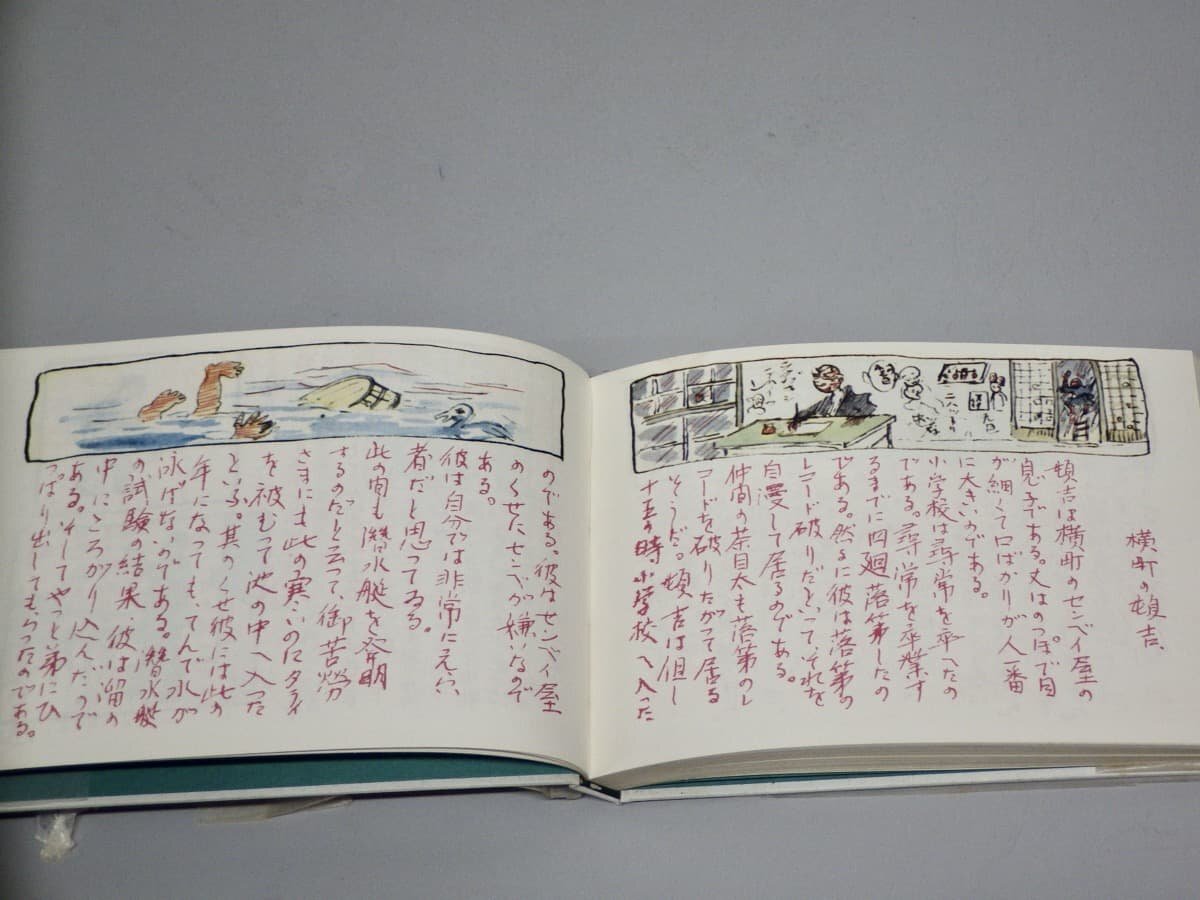 横町の頓吉、
頓吉は横町のセンベイ屋の
息子である。丈はのつぽで目
が細くて口ばかりが人一番
に大きいのである。
小学校は尋常を卒へたの
である。尋常を卒業す
るまでに四廻落第したの
である。然るに彼は落第の
レコード破りだといって、それを
自慢して居るのである。
仲間の茶目太も落第のレ
コードを破りたがって居る
そうだ。頓吉は但し
十五の時小学校へ入った
のである。彼はセンベイ屋
のくせにセンベが嫌いなので
ある。
彼は自分では非常にえらい
者だと思ってゐる。
此の間も潜水艇を発明
するのだと云って、御苦労
さまにも此の寒いのにタライ
を被むって池の中へ入った
といふ。其のくせ彼には此の
年になっても、てんで水が
泳げないのである。潜水艇
の試験の結果、彼は溜の
中にころがり込んだので
ある。そしてやっと弟にひ
っぱり出してもらったのである。